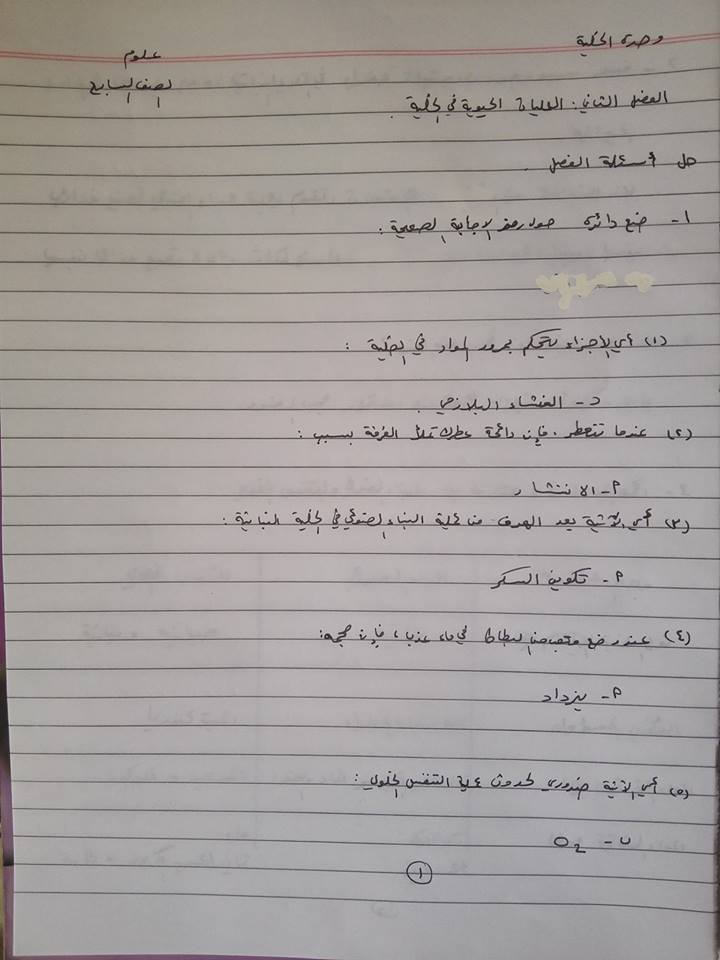 وحدة الخلية
علوم
الصف السابع
الفصل الثاني: العمليات الحيوية في الخلية.
حل أسئلة الفصل.
١- ضع دائرة حول رمز الإجابة الصحيحة:
(١) أي الأجزاء يتحكم بمرور المواد في الخلية:
د- الغشاء البلازمي.
(٢) عندما تتعطر، فإن رائحة عطرك تملأ الغرفة بسبب:
أ- الانتشار
(٣) أي الآتية يعد الهدف من عملية البناء الضوئي في الخلية النباتية:
أ- تكوين السكر
(٤) عند وضع مكعب من البطاطا في ماء عذب، فإن حجمه:
أ- يزداد
(٥) أي الآتية ضروري لحدوث عملية التنفس الخلوي:
ب- O2
١